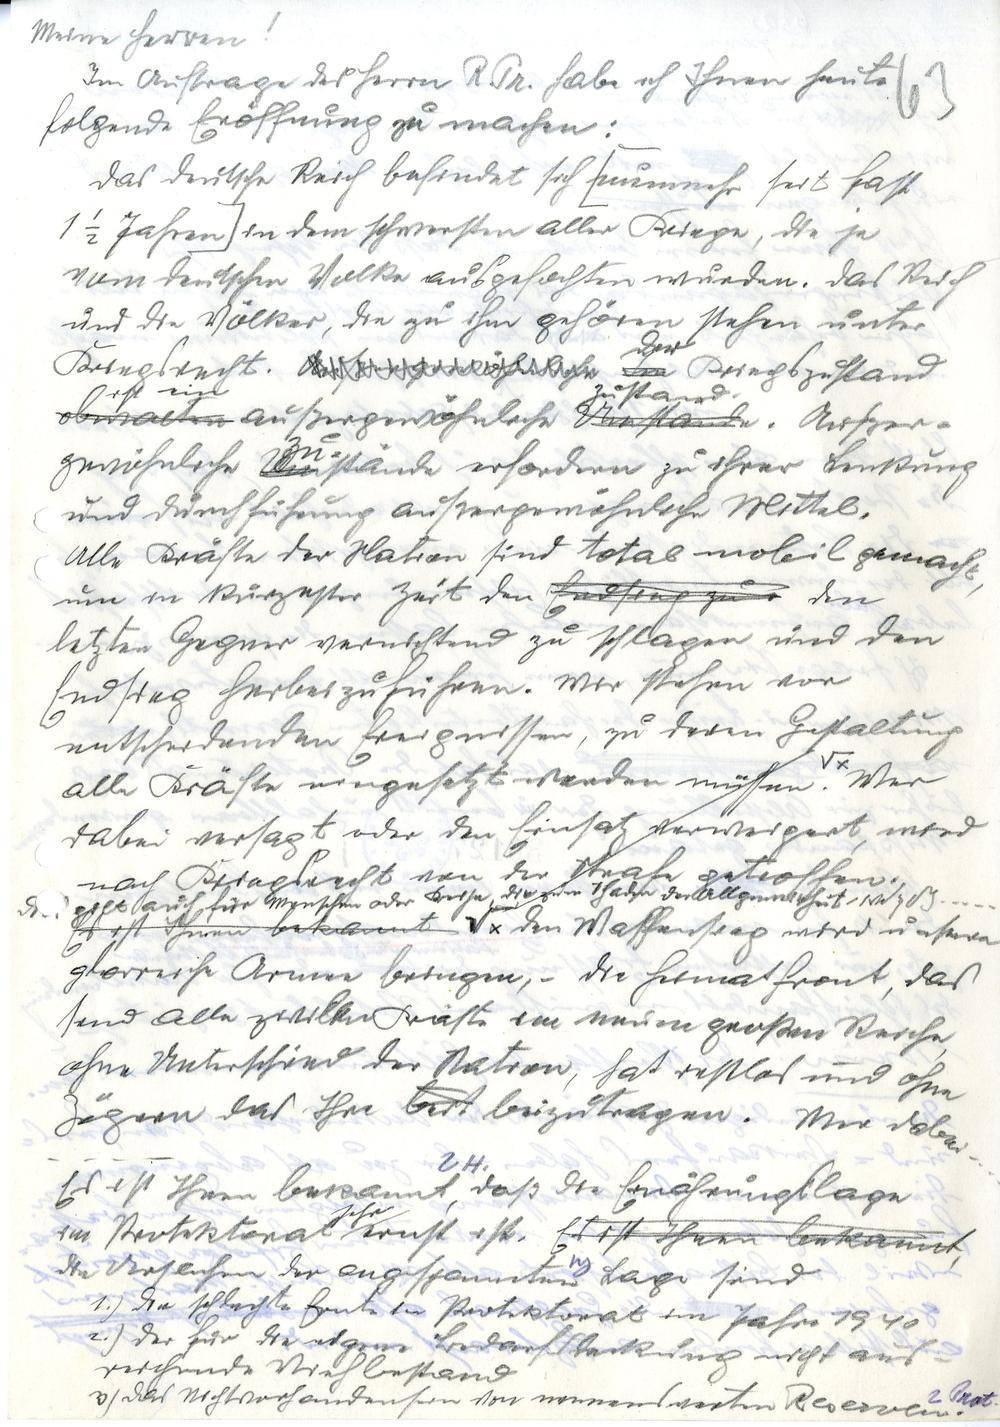 Meine Herren!
Im Auftrage des Herrn R. Pr. habe ich Ihnen heute
folgende Eröffnung zu machen:
Das Deutsche Reich befindet sich [nunmehr seit fast
1 ½ Jahren] in dem schwersten aller Kriege, die je
vom deutschen Volke ausgefochten wurden. Das Reich
und die Völker, die zu ihm gehören stehen unter
Kriegsrecht. der Kriegszustand
ist ein zustand.
obwalten außergewöhnliche Umstände. Ausser-
gewöhnliche Zustände erfordern zu ihrer Lenkung
und Durchführung aussergewöhnliche Mittel.
Alle Kräfte der Nation sind total mobil gemacht,
um in kürzester Zeit den Endsieg zu den
letzten Gegner vernichtend zu schlagen und den
Endsieg herbeizuführen. Wir stehen vor
entscheidenden Ereignissen, zu deren Gestaltung
alle Kräfte eingesetzt werden müssen. Wer
dabei versagt oder den Einsatz verweigert, wird
nach Kriegsrecht von der Strafe getroffen.
gilt auch für Menschen oder Kreise, die zum Schaden der Allgemeinheit
Es ist Ihnen bekannt den Waffensieg wird unsere
glorreiche Armee bringen, - die Heimatfront, das
sind alle zivilen Kräfte im neuen großen Reiche,
ohne Unterschied der Nation, hat restlos und ohne
Zögern das Ihre beizutragen. Wer dabei
24.
Es ist Ihnen bekannt, daß die Ernährungslage
im Protektorat sehr ernst ist. Es ist Ihnen bekannt,
die Ursachen der angespannten Lage sind
1.) die schlechte Ernte im Protektorat im Jahre 1940
2.) der für die eigene Bedarfsdeckung nicht aus-
reichende Viehbestand
3) das Nichtvorhandensein von nennenswerten Reserven.